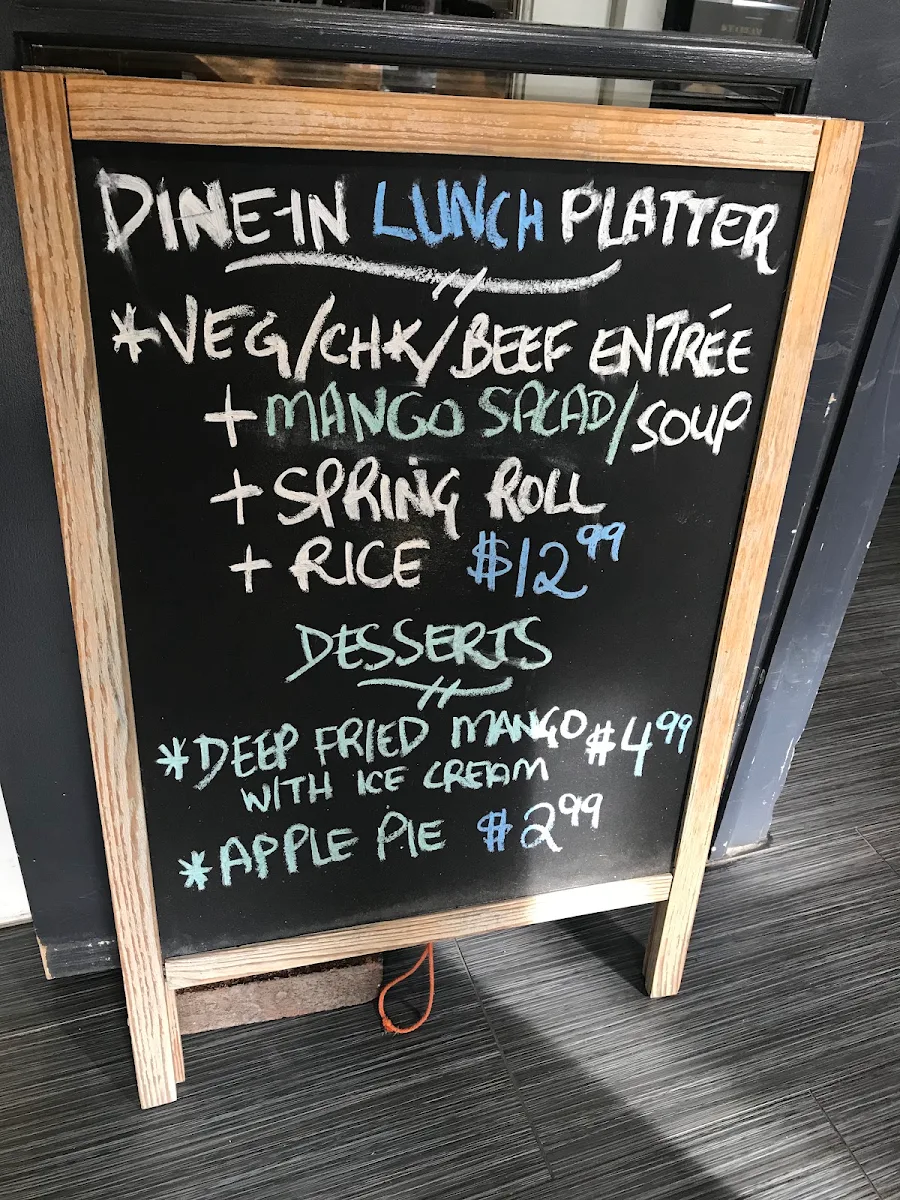 DINE-IN LUNCH PLATTER
*VEG/CHK/BEEF ENTRÉE
+MANGO SALAD/SOUP
+SPRING ROLL
+ RICE $12.99
DESSERTS
*DEEP FRIED MANGO $4.99
WITH ICE CREAM
*APPLE PIE $2.99